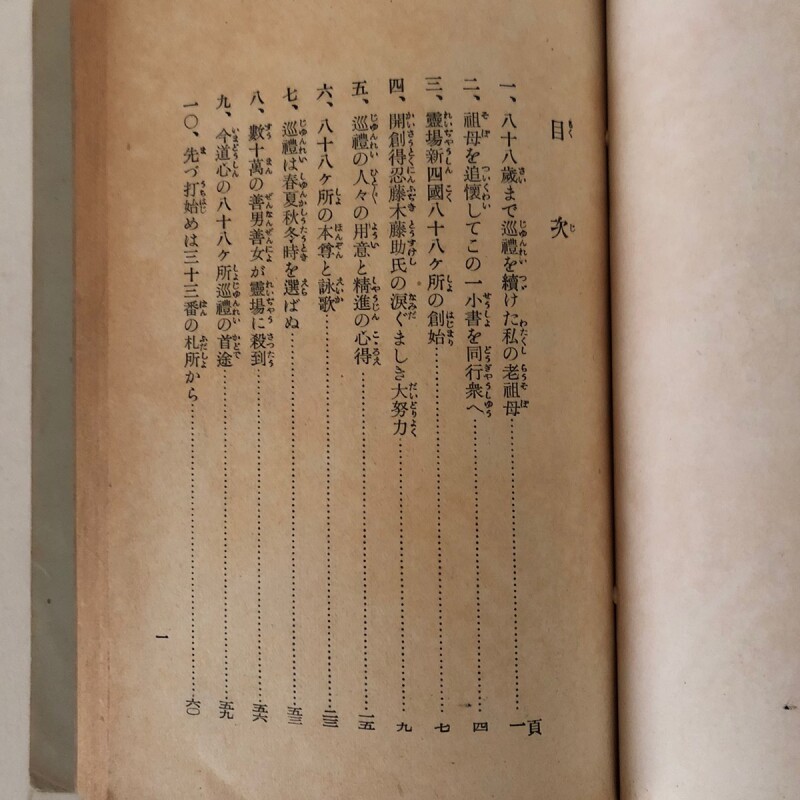 目次
一、八十八歳まで巡禮を續けた私の老祖母…………一頁
二、祖母を追懷してこの一小書を同行衆へ…………四
三、靈場新四國八十八ケ所の創始…………七
四、開創得忍藤木藤助氏の淚ぐましき大努力…………九
五、巡禮の人々の用意と精進の心得…………一五
六、八十八ケ所の本尊と詠歌…………二三
七、巡禮は春夏秋冬時を選ばぬ…………五三
八、數十萬の善男善女が靈場に殺到…………五六
九、今道心の八十八ケ所巡禮の首途…………五九
一〇、先づ打始めは三十三番の札所から…………六〇
一